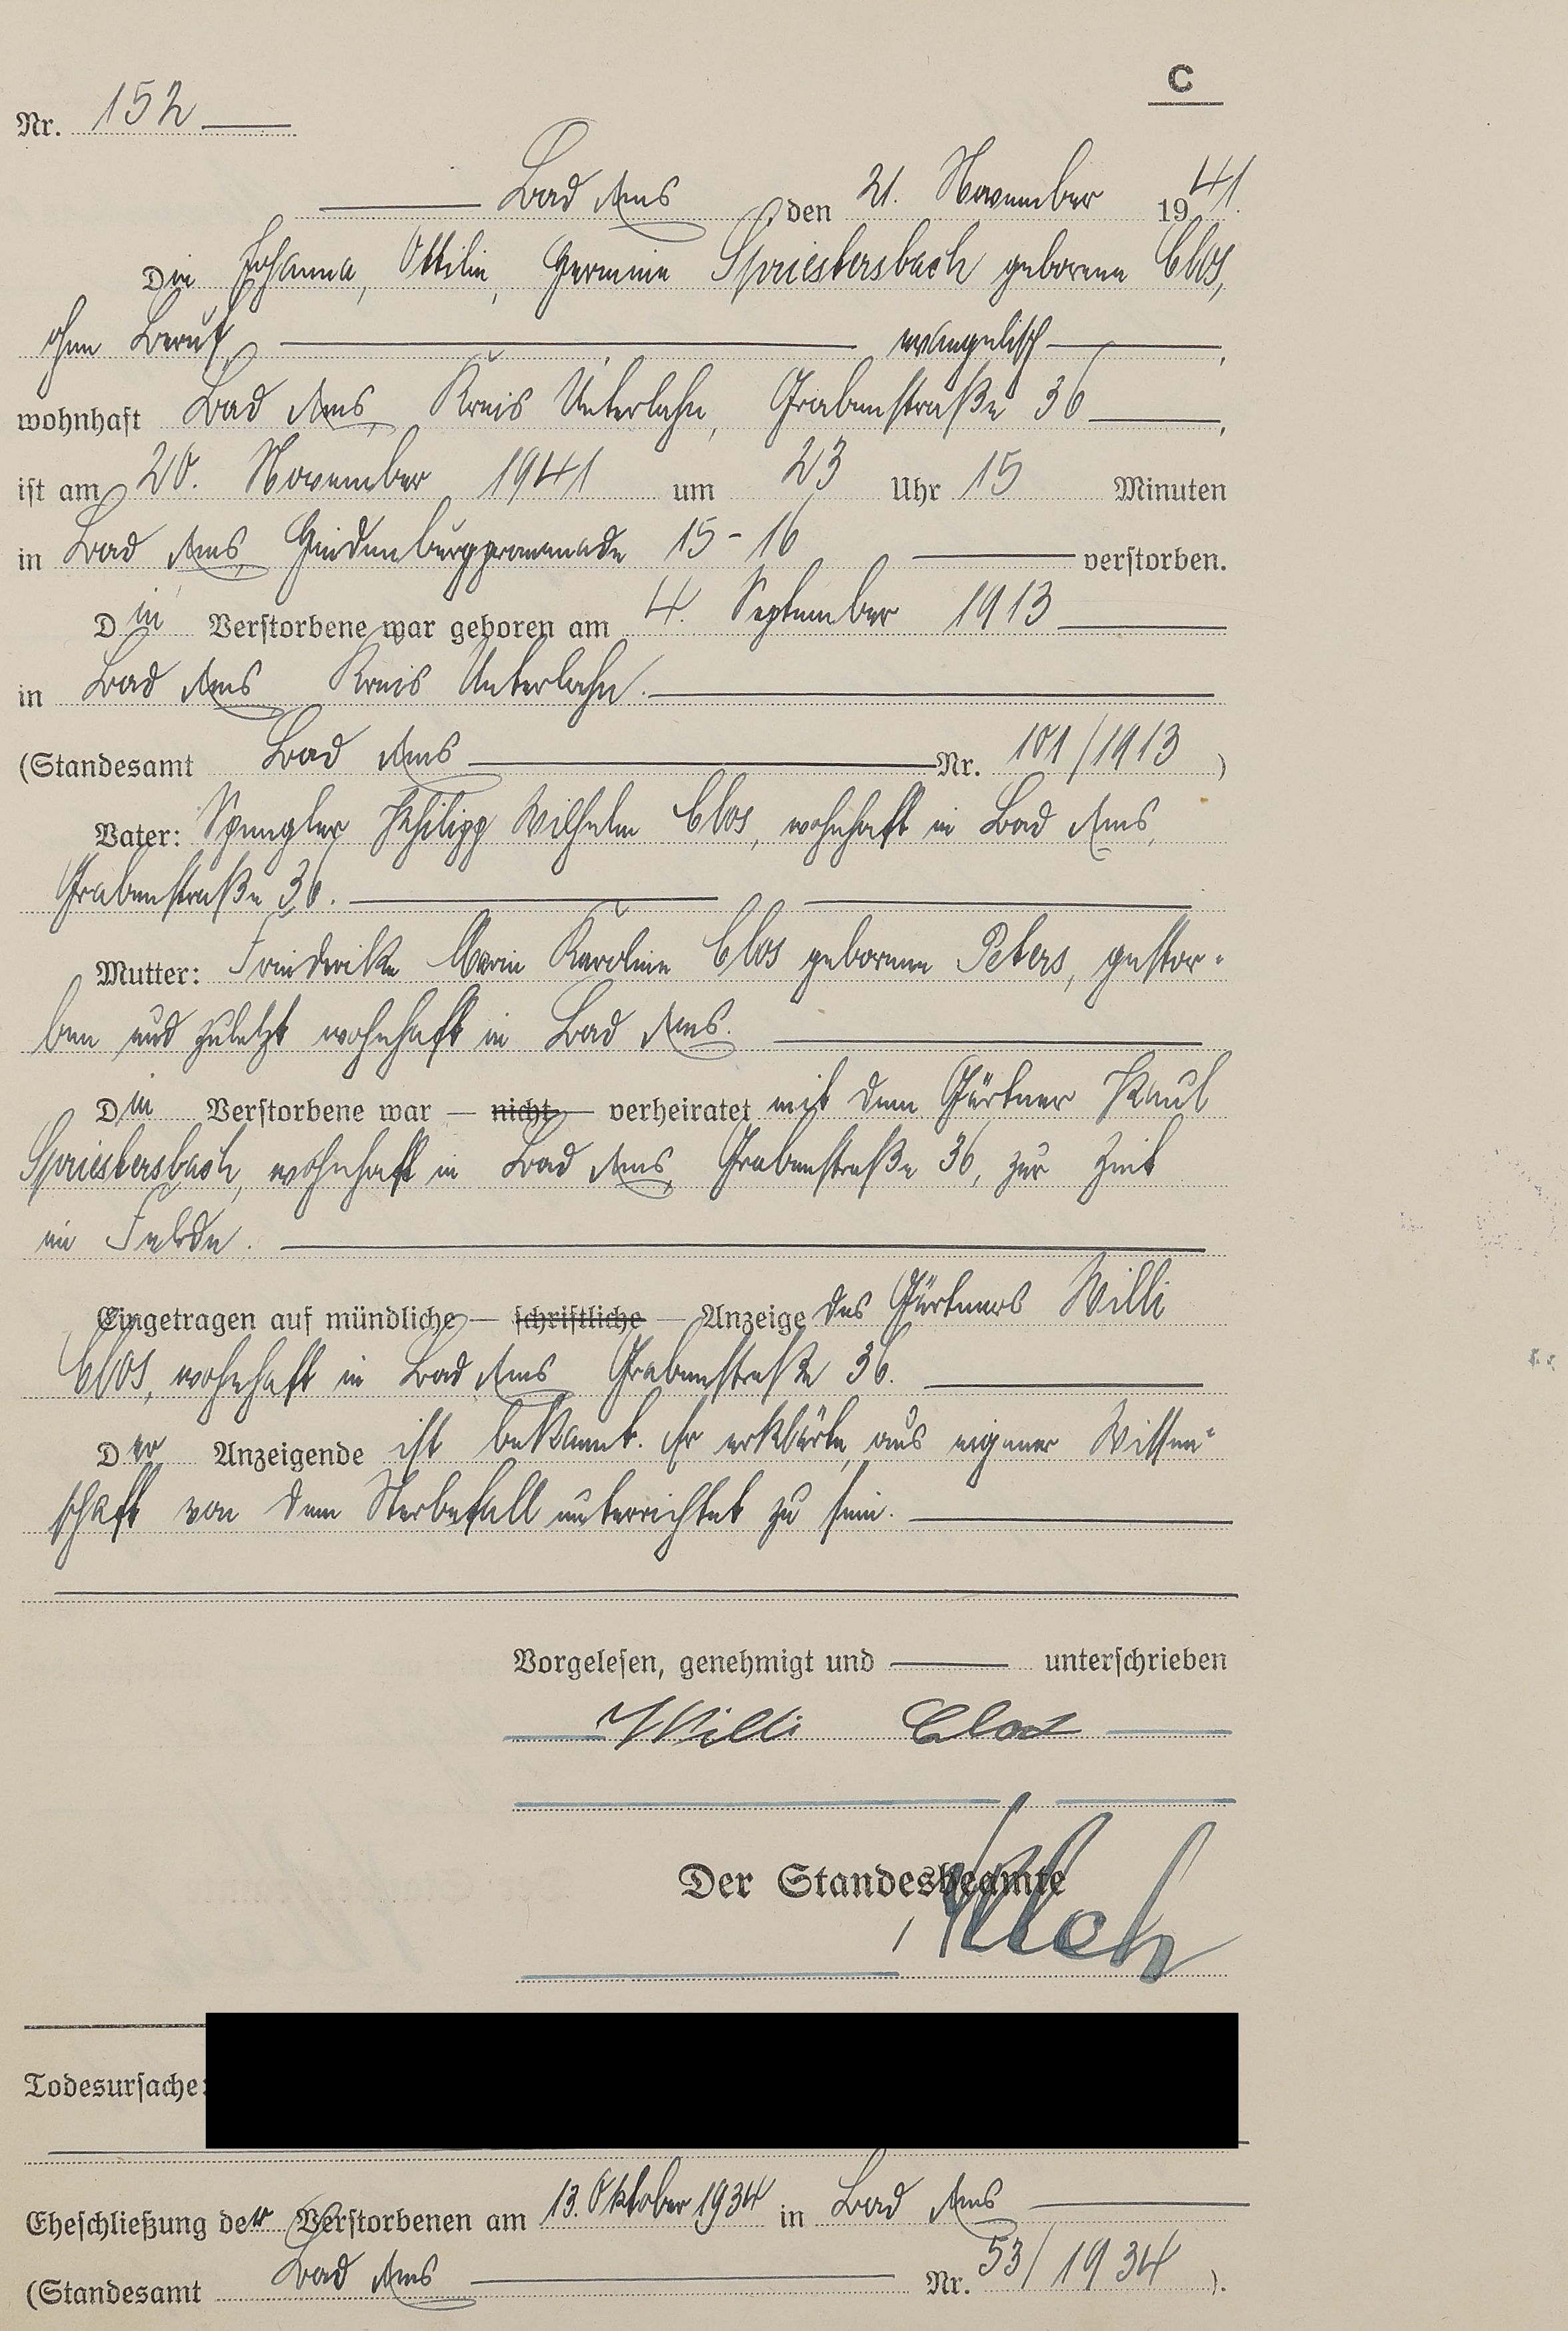 C
Nr. 152
Bad Ems, den 21. November 1941.
Die Johanna, Ottilie, Hermine Spriestersbach geborene Clos,
ohne Beruf, evangelisch,
wohnhaft Bad Ems, Kreis Unterlahn, Grabenstraße 36,
ist am 20. November 1941 um 23 Uhr 15 Minuten
in Bad Ems, Hindenburgpromenade 15-16 verstorben.
Die Verstorbene war geboren am 4. September 1913
in Bad Ems Kreis Unterlahn.
(Standesamt Bad Ems Nr. 101/1913)
Vater: Spengler Philipp Wilhelm Clos, wohnhaft in Bad Ems,
Grabenstraße 36.
Mutter: Friederike Marie Karoline Clos geborene Peters, gestor-
ben und zuletzt wohnhaft in Bad Ems.
Die Verstorbene war — nicht — verheiratet mit dem Gärtner Paul
Spriestersbach, wohnhaft in Bad Ems, Grabenstraße 36, zur Zeit
im Felde.
Eingetragen auf mündliche — schriftliche — Anzeige des Gärtners Willi
Clos, wohnhaft in Bad Ems Grabenstraße 36.
Der Anzeigende ist bekannt. Er erklärte, aus eigener Wissen-
schaft von dem Sterbefall unterrichtet zu sein.
Vorgelesen, genehmigt und unterschrieben
Willi Clos
Der Standesbeamte
Todesursache:
Eheschließung der Verstorbenen am 13. Oktober 1934 in Bad Ems
(Standesamt Bad Ems Nr. 53/1934).